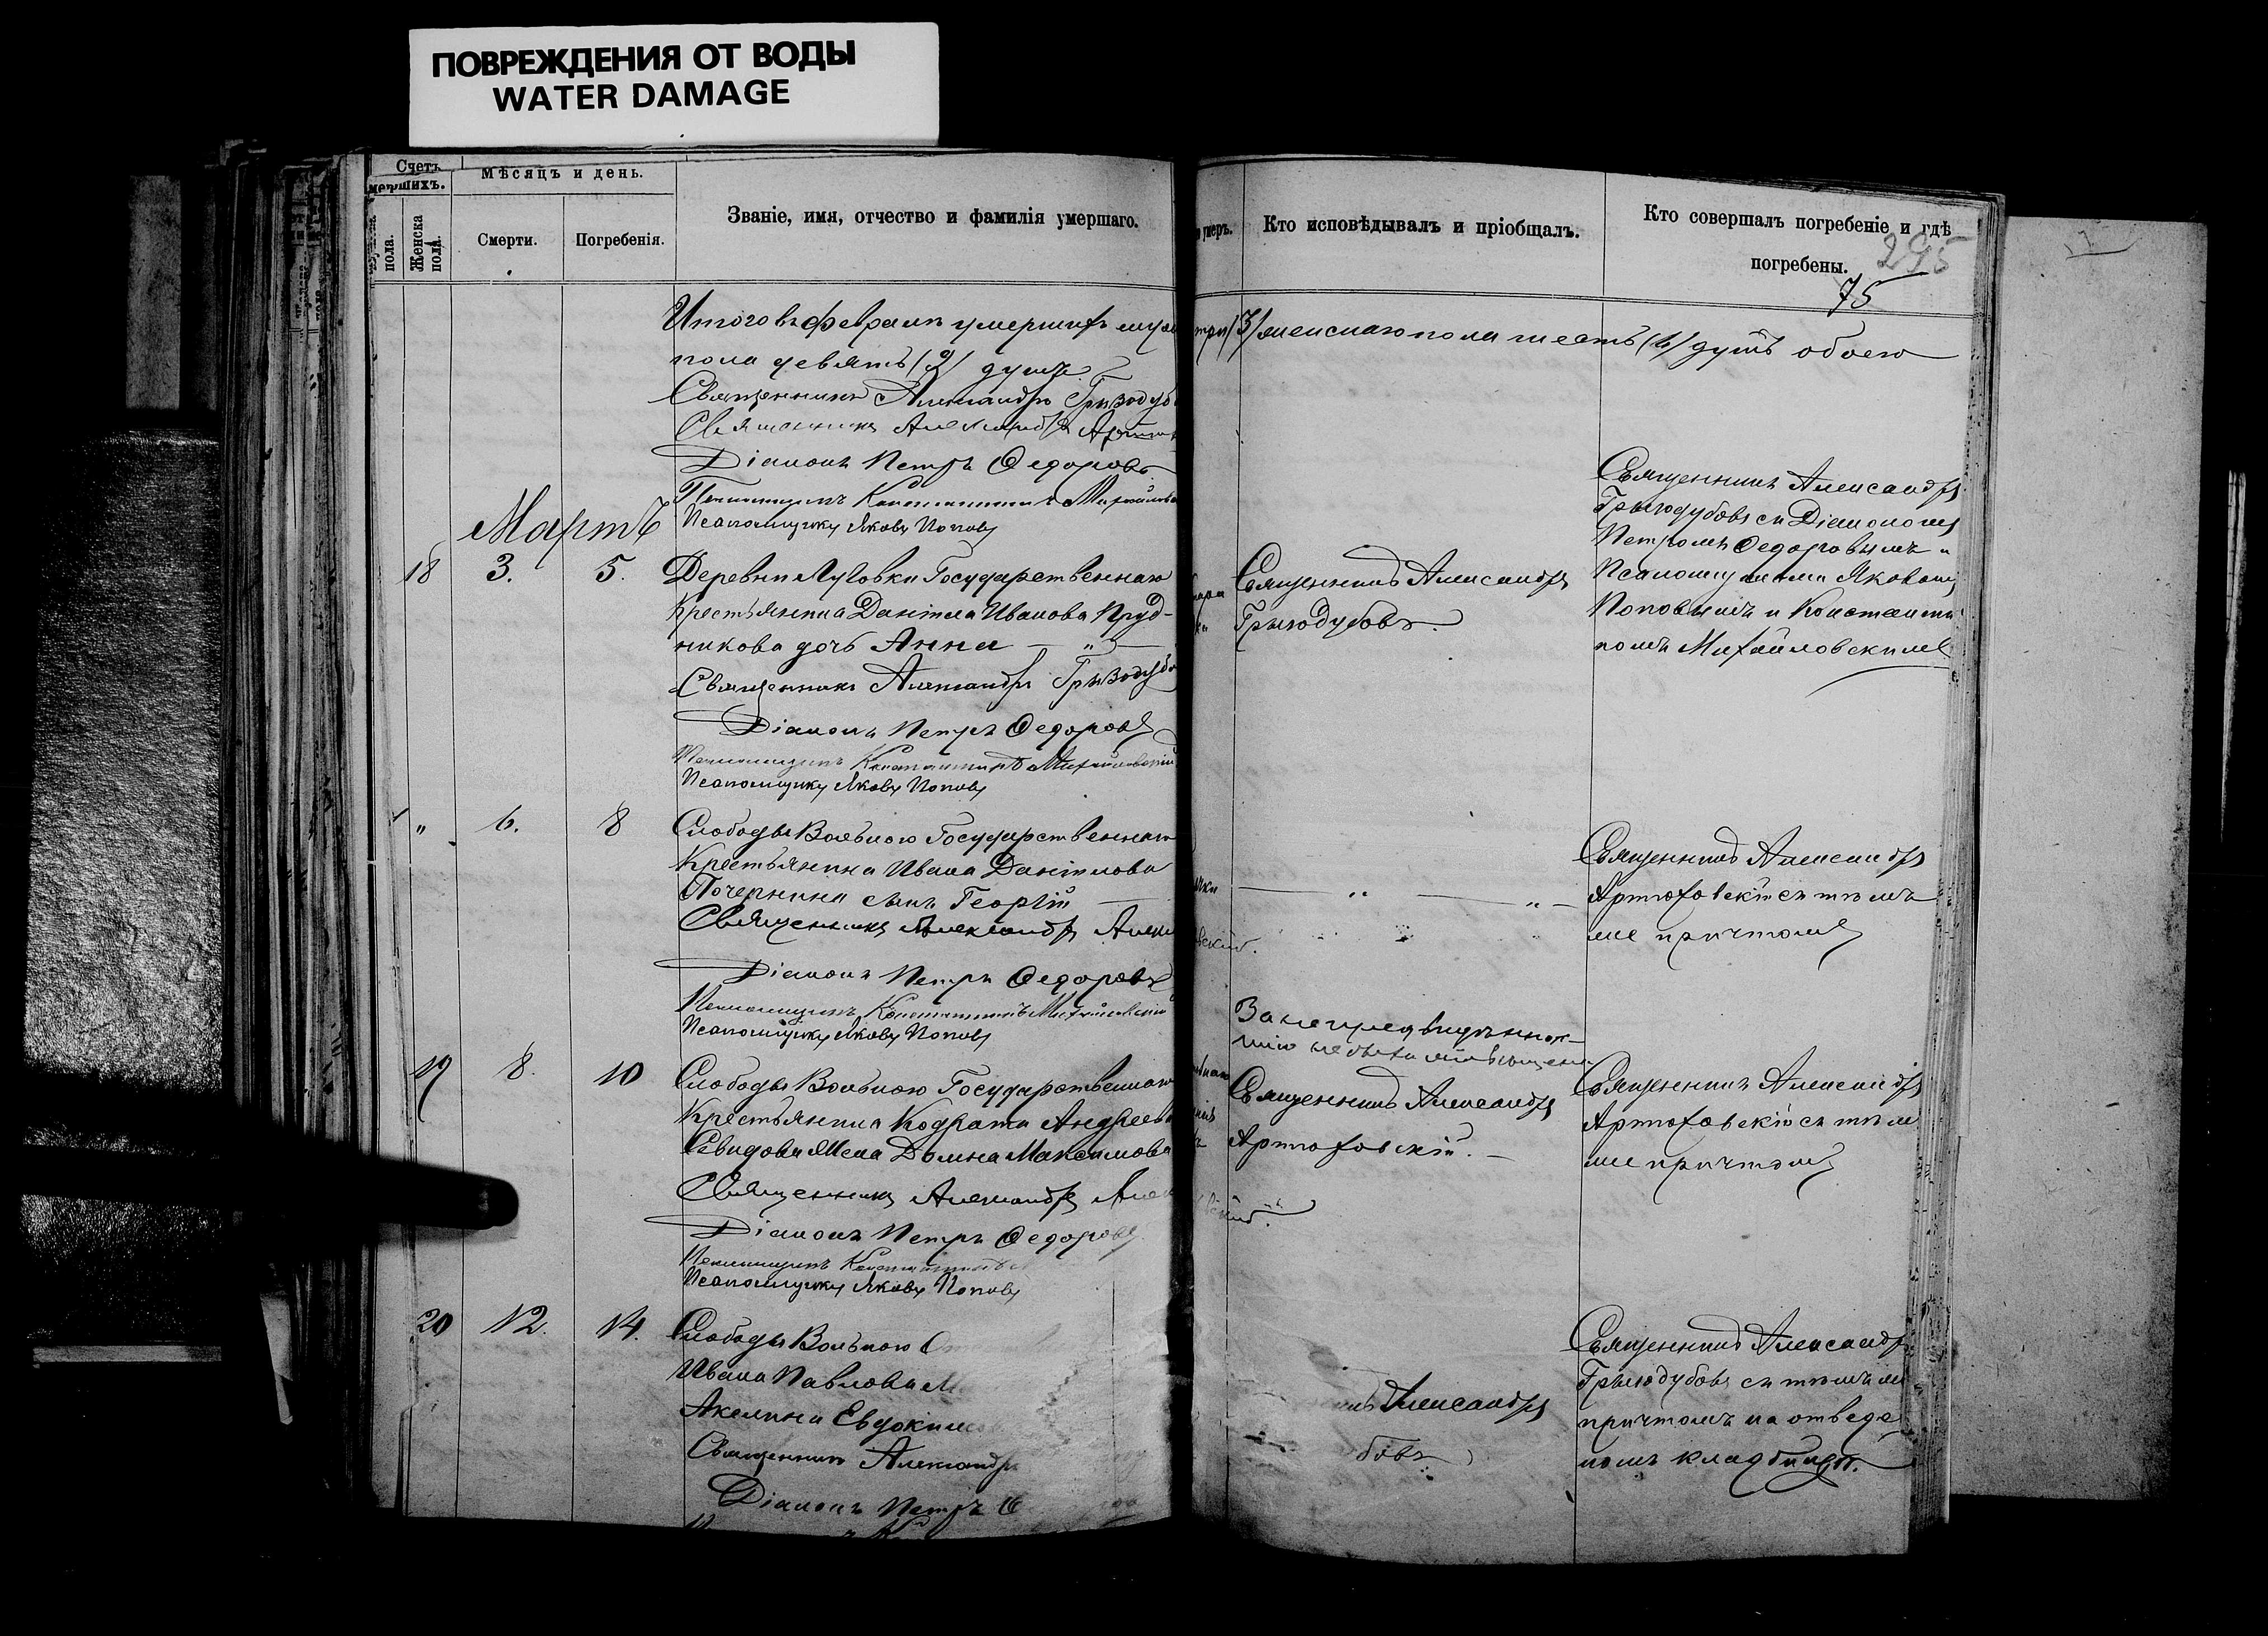 ПОВРЕЖДЕНИЯ ОТ ВОДЫ
WATER DAMAGE
Счетъ
мершихъ.
Мѣсяцъ и день.
пола.
Женска пола.
Смерти.
Погребенія.
Званіе, имя, отчество и фамилія умершаго.
умеръ.
Кто исповѣдывалъ и пріобщалъ.
Кто совершалъ погребеніе и гдѣ
погребены.
295
75
Итого въ февралѣ умершихъ муж три (3) женскаго пола шесть (6) душъ обоего
пола девять (9) душъ
Священникъ Александръ Грызодуб
Священникъ Александръ
Діаконъ Петръ Ѳедоровъ
Псаломщикъ Константинъ Михайловс
Псаломщикъ Яковъ Поповъ
Мартъ
18 3. 5. Деревни Луговки Государственнаго
Крестьянина Даніила Иванова Пруд-
никова дочь Анна — „ —
Священникъ Александръ Грызодубо
Діаконъ Петръ Ѳедоровъ
Псаломщикъ Константинъ Михайловскій
Псаломщикъ Яковъ Поповъ
Священникъ Александръ
Грызодубовъ.
Священникъ Александръ
Грызодубовъ съ Діакономъ
Петромъ Ѳедоровымъ и
Псаломщиками Яковомъ
Поповымъ и Константи
номъ Михайловскимъ
„ 6. 8 Слободы Вольного Государственнаго
Крестьянина Ивана Даніилова
Почернина сынъ Георгій
Священникъ Александръ
Діаконъ Петръ Ѳедоровъ
Псаломщикъ Константинъ Михайловскій
Псаломщикъ Яковъ Поповъ
— „ — „ —
Священникъ Александръ
Артюховскій съ тѣмъ
же причтомъ
19 8. 10 Слободы Вольного Государственнаго
Крестьянина Кодрата Андреева
жена Домна Максимова
Священникъ Александръ
Діаконъ Петръ Ѳедоровъ
Псаломщикъ Константинъ
Псаломщикъ Яковъ Поповъ
Священникъ Александръ
Артюховскій. —
Священникъ Александръ
Артюховскій съ тѣм
же причтомъ
20 12. 14. Слободы Вольного
Ивана Павлова
Акелина Евдокимо
Священникъ Александръ
Діаконъ Петръ Ѳ
Александръ
бовъ
Священникъ Александръ
Грызодубовъ съ тѣмъ же
причтомъ на отведе
номъ кладбищѣ.